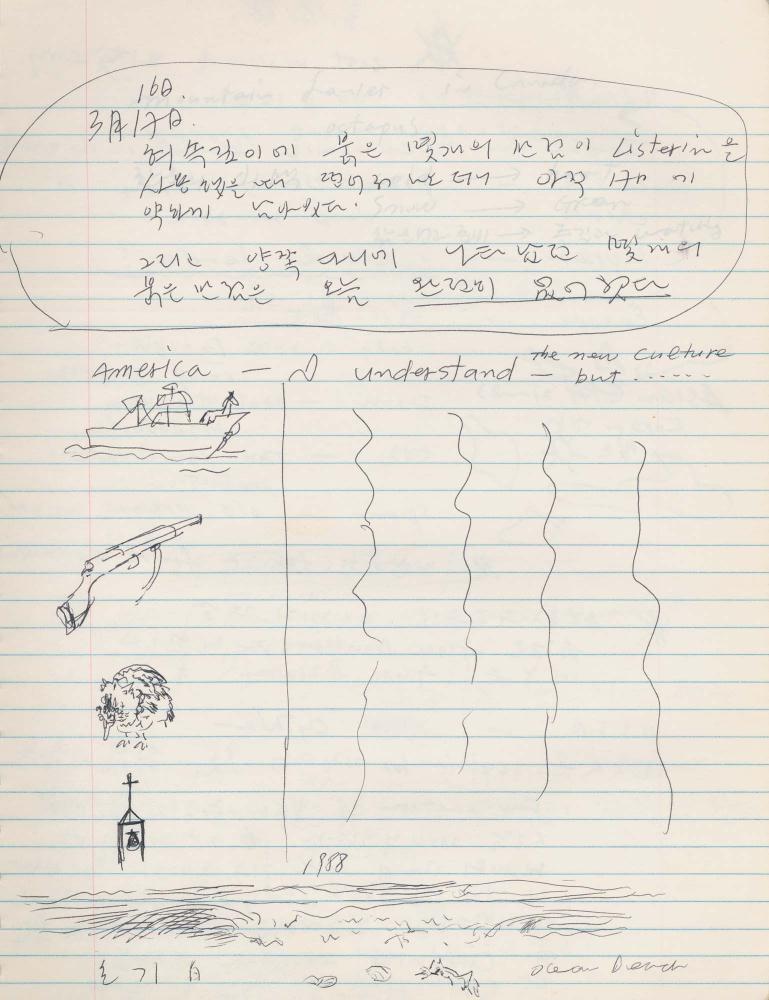 16日.
3月17日.
혀 속깊이에 붉은 몇개의 반점이 Listerin을
사용했을때 아직 1개
약하게 남아있다.
그리고 양쪽 몇개의
붉은 반점은 오늘 완전히 없어졌다
America — understand — the new culture
but ......
1988
ocean beach